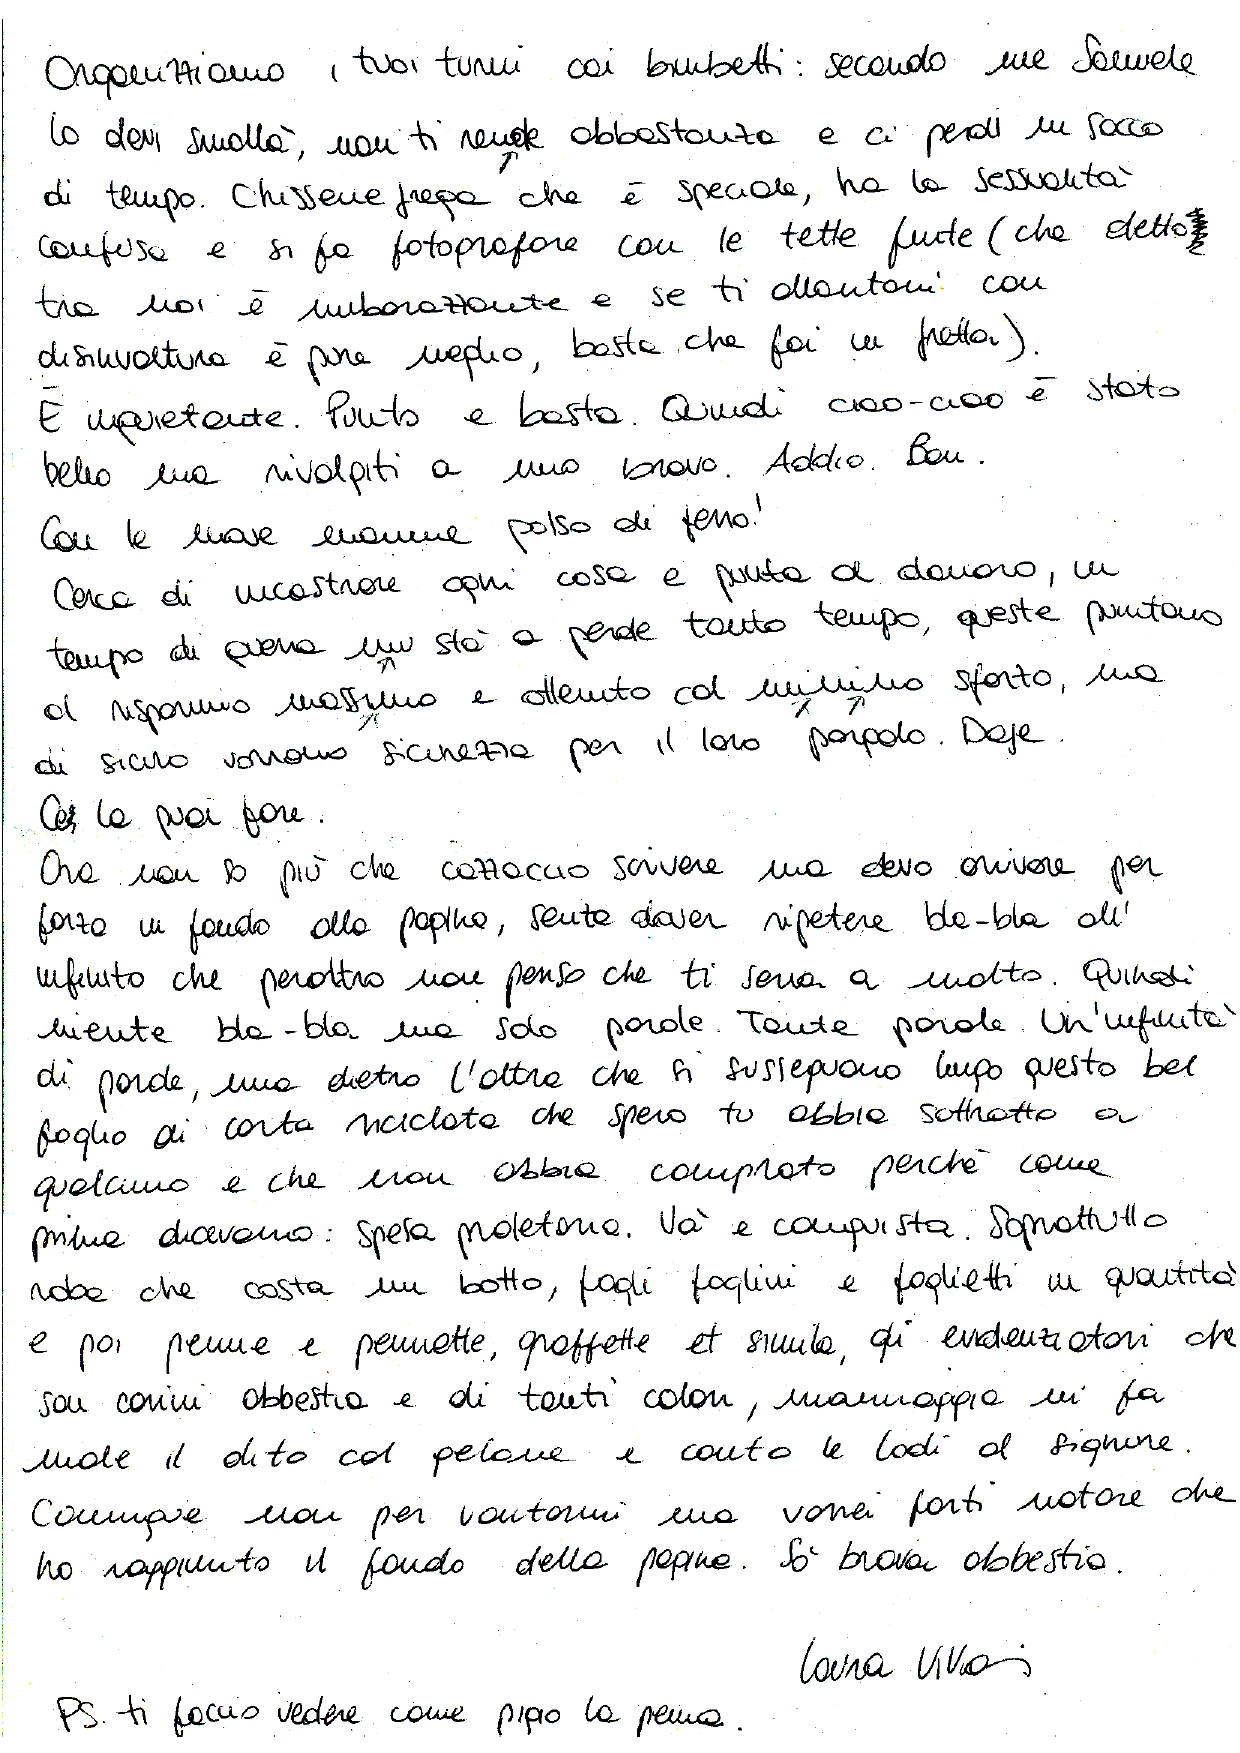 Organizziamo i tuoi turni coi bimbetti: secondo me Samuele
lo devi smollà, non ti rende abbastanza e ci perdi un sacco
di tempo. Chissenefrega che è speciale, ha la sessualità
confusa e si fa fotografare con le tette finte (che detto
tra noi è imbarazzante e se ti allontani con
disinvoltura è pure meglio, basta che fai in fretta).
È inquietante. Punto e basta. Quindi ciao-ciao è stato
bello ma rivolgiti a uno bravo. Addio. Bon.
Con le nuove mamme polso di ferro!
Cerca di incastrare ogni cosa e punta al danaro, in
tempo di guerra nun stà a perde tanto tempo, queste puntano
al risparmio massimo e ottenuto col minimo sforzo, ma
di sicuro vorranno sicurezza per il loro pargolo. Daje.
Ce la puoi fare.
Ora non so più che cazzaccio scrivere ma devo arrivare per
forza in fondo alla pagina, senza dover ripetere bla-bla all'
infinito che peraltro non penso che ti serva a molto. Quindi
niente bla-bla ma solo parole. Tante parole. Un'infinità
di parole, una dietro l'altra che si susseguono lungo questo bel
foglio di carta riciclata che spero tu abbia sottratto a
qualcuno e che non abbia comprato perchè come
prima dicevamo: spesa proletaria. Và e conquista. Soprattutto
roba che costa un botto, fogli foglini e foglietti in quantità
e poi penne e pennette, graffette et simila, gli evidenziatori che
son carini abbestia e di tanti colori, mannaggia mi fa
male il dito col pelame e canto le lodi al signore.
Comunque non per vantarmi ma vorrei farti notare che
ho raggiunto il fondo della pagina. Sò brava abbestia.
Laura Vivai
PS. ti faccio vedere come pigio la penna.